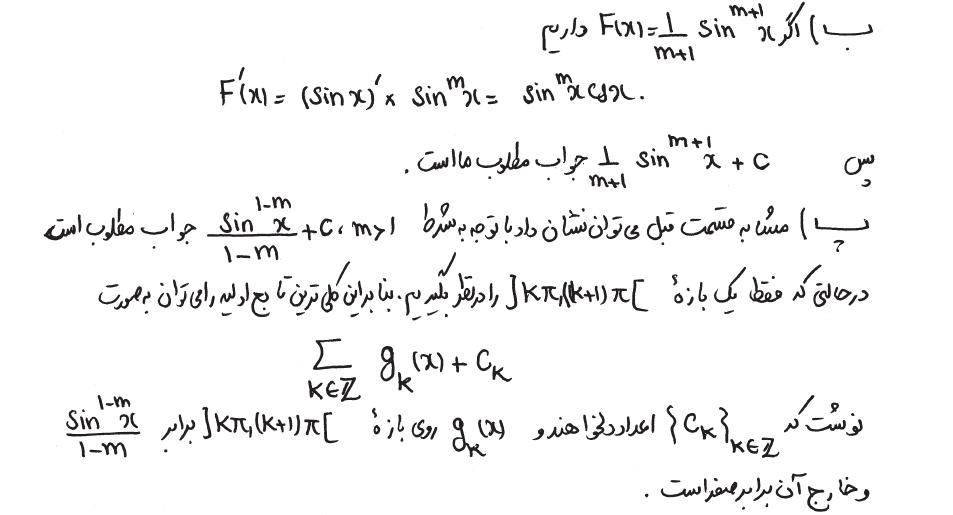 ب) اگر F(x) = 1/(m+1) sin^{m+1} x داریم
F'(x) = (sin x)' × sin^m x = sin^m x cos x.
پس 1/(m+1) sin^{m+1} x + C جواب مطلوب ما است.
پ) مشابه قسمت قبل می‌توان نشان داد با توجه به شرط m>1، sin^{1-m} x/(1-m) + C جواب مطلوب است
درحالتی که فقط یک بازهٔ ]kπ,(k+1)π[ را درنظر بگیریم. بنابراین کلی ترین تابع اولیه را می‌توان به صورت
∑_{k∈ℤ} g_k(x) + C_k
نوشت که {C_k}_{k∈ℤ} اعداد دلخواهند و g_k(x) روی بازهٔ ]kπ,(k+1)π[ برابر sin^{1-m} x/(1-m)
و خارج آن برابر صفر است.